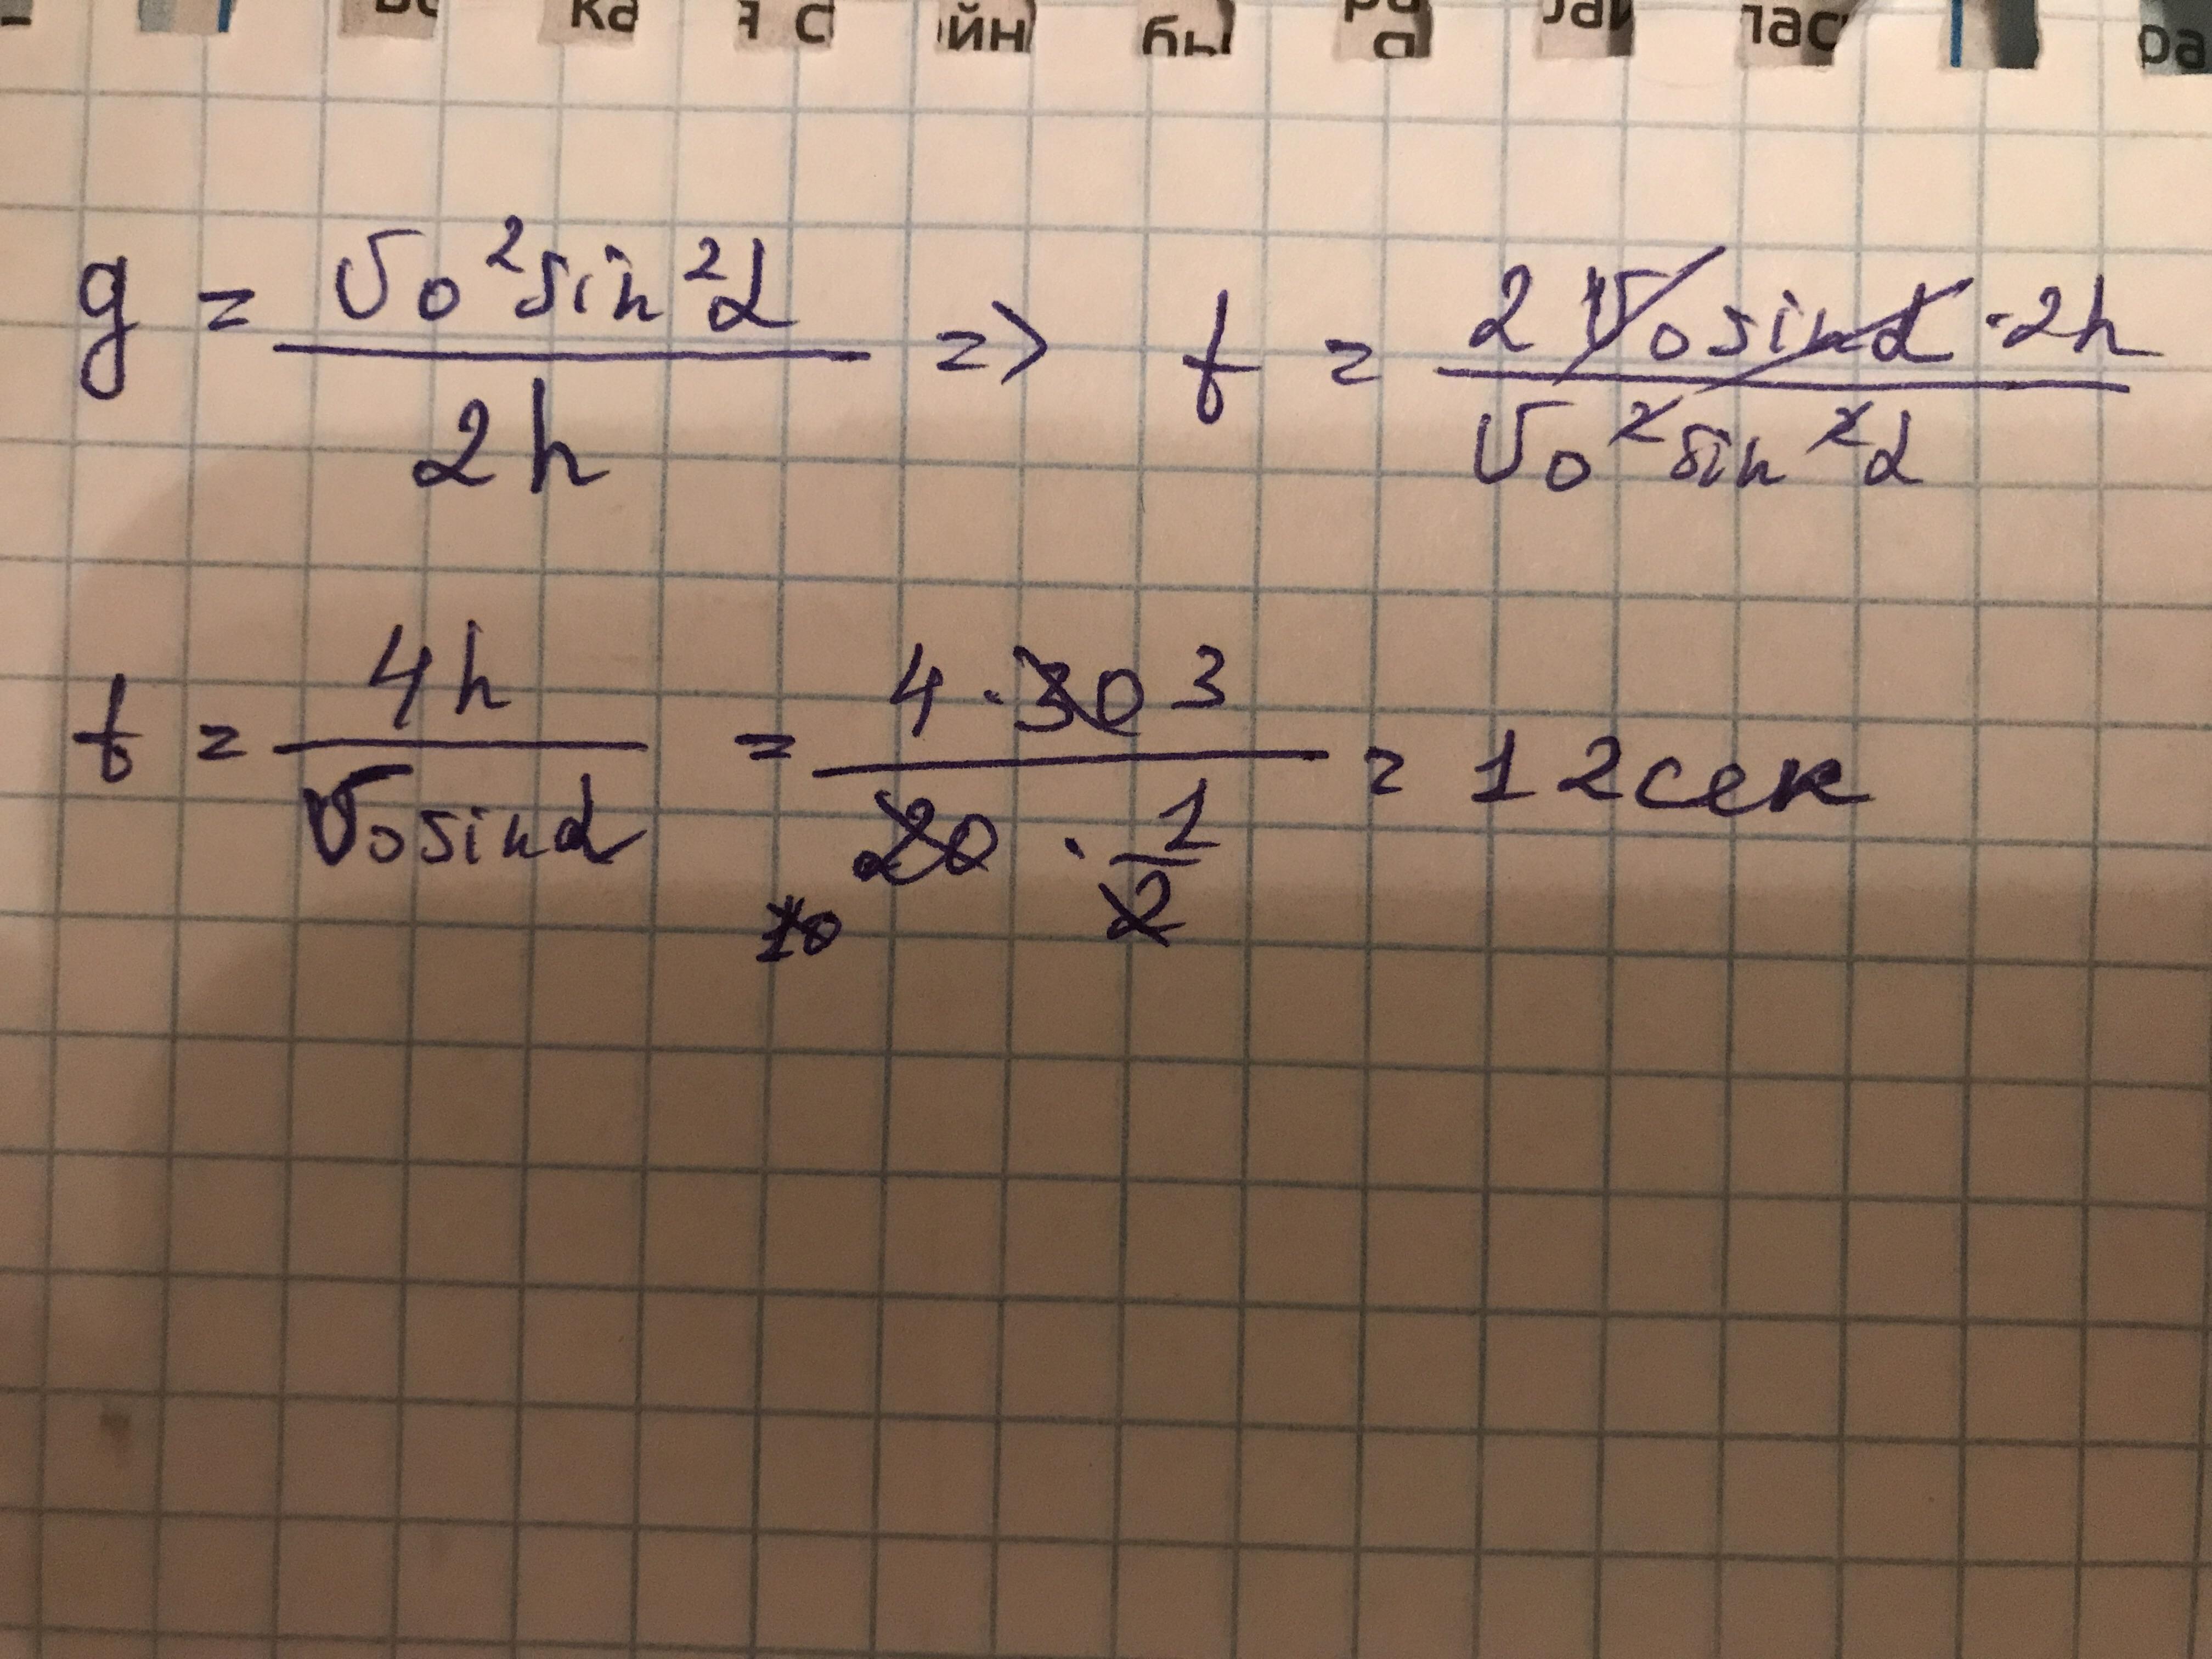 ка я с йн бы ра ас ра
g = v₀² sin² α / 2h => t = 2 v₀ sin α · 2h / v₀² sin² α
t = 4h / v₀ sin α = 4 · 30 3 / 20 · 1/2 = 12 сек
10